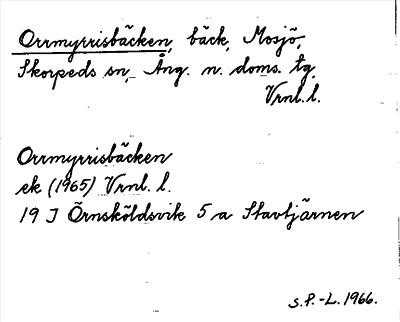 Orrmyrrisbäcken, bäck, Mosjö,
Skorpeds sn, Ång. n. doms. tg.
Vrnl. l.
Orrmyrrisbäcken
ek (1965) Vrnl. l.
19 J Örnsköldsvik 5 a Stavtjärnen
S.P.-L. 1966.